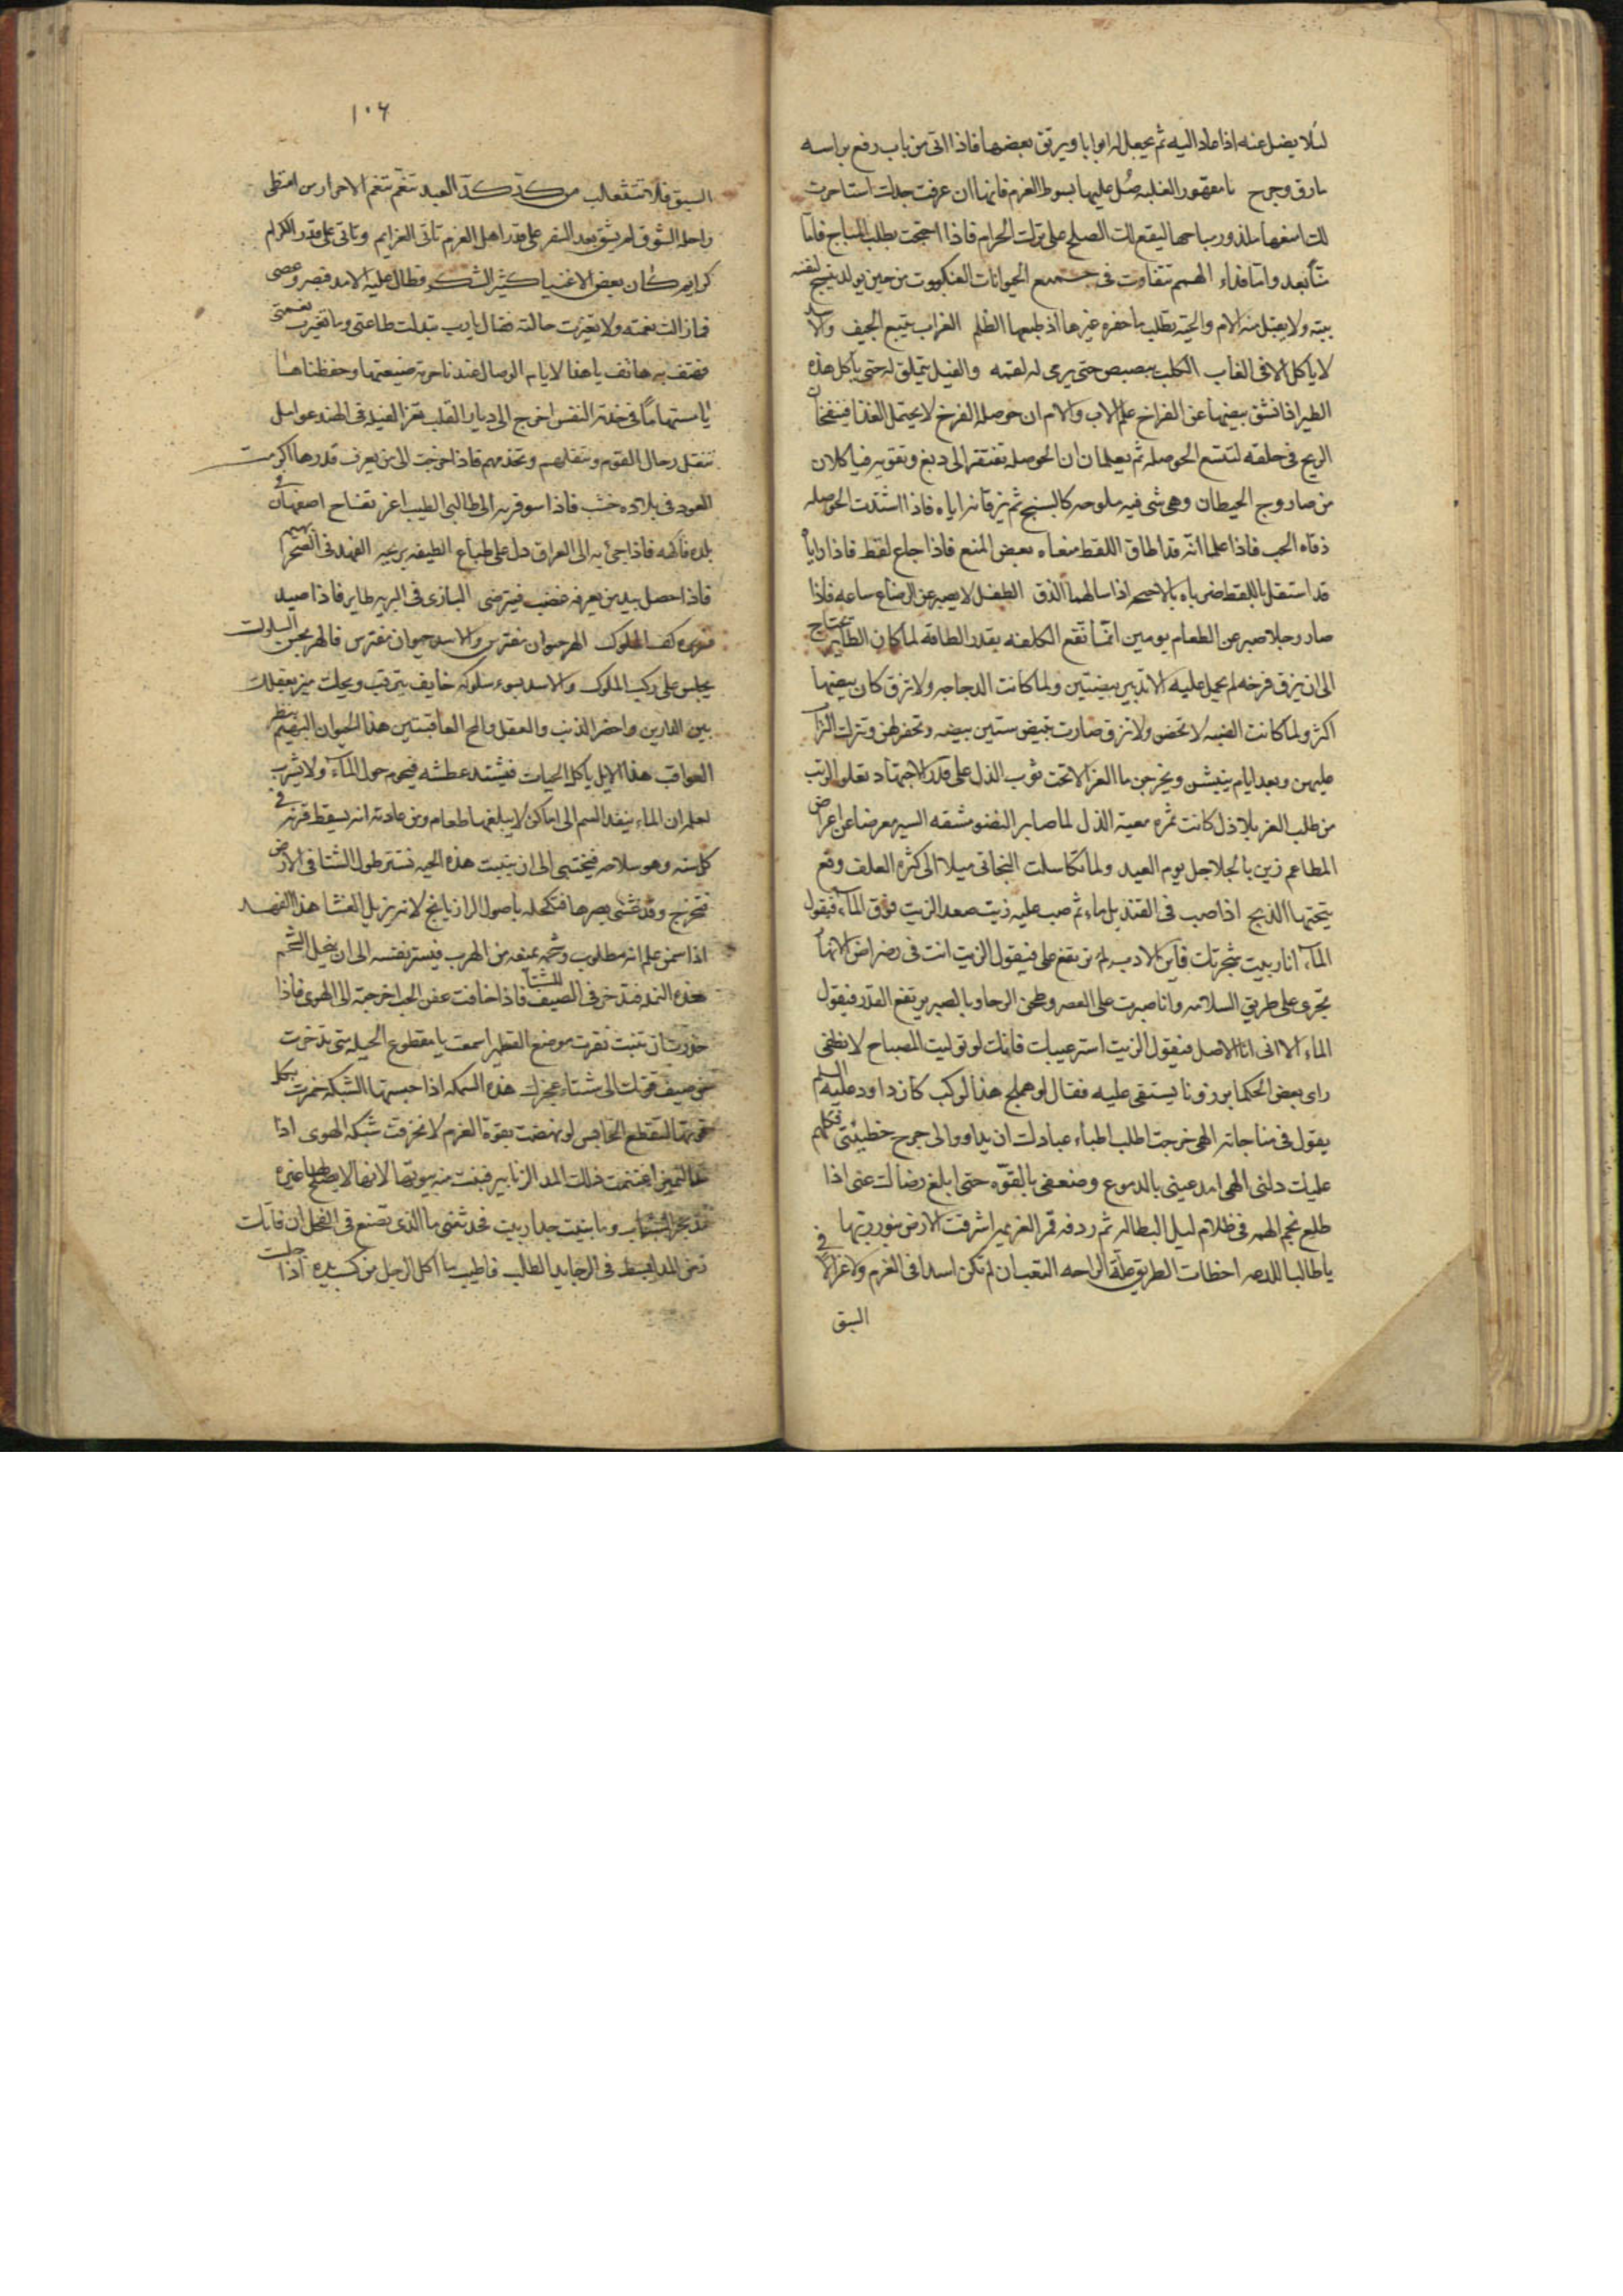 لئلا يضل عنه اذا عاد اليه ثم يجعل له ابوابا ويرقق بعضها فاذا اتى من باب دفع براسه
مارق وخرج يا مقهور الغلبه صُل عليها بسوط العزم فانها ان عرفت جدك استاسرت
لك امنعها ملذوذ مباحها ليقع لك الصلح على ترك الحرام فاذا احتجت بطلب المباح فاما
منا بعد واما فداء الهمم تتفاوت في جميع الحيوانات العنكبوت من حين يولد ينسج لنفسه
بيته ولا يقبل منه الام والحيه تطلب ما حفره غيرها اذ طبعها الظلم الغراب يتبع الجيف والاسد
لا ياكل الا في الغاب الكلب يبصبص حتى يرمى له لقمه والفيل يتملق له حتى ياكل هذه
الطير اذا انشق بيضها عن الفراخ علم الاب والام ان حوصله الفرخ لا يحتمل الغذا فينفخان
الريح في حلقه لتتسع الحوصله ثم يعلمان ان الحوصله تفتقر الى دبغ وتقويه فياكلان
من صاروج الحيطان وهي شي فيه ملوحه كالسبخ ثم يزقانه اياه فاذا اشتدت الحوصله
زقاه الحب فاذا علما انه قد اطاق اللقط منعاه بعض المنع فاذا جاع لقط فاذا راياه
قد استقل باللقط ضرباه بالاجنحه اذا سالهما الزق الطفل لا يصبر عن الرضاع ساعه فاذا
صار رجلا صبر عن الطعام يومين انما تقع الكلفه بقدر الطاقه لما كان الطاير يحتاج
الى ان يزق فرخه لم يحمل عليه الا تدبير بيضتين ولما كانت الدجاجه ولا تزق كان بيضها
اكثر ولما كانت الضبه لا تحضن ولا تزق صارت تبيض ستين بيضه وتحفر لهن وتترك التراب
عليهن وبعد ايام ينبشن ويخرجن ما العز الا تحت ثوب الذل على قدر الاجتهاد تعلو الرتب
من طلب العز بلا ذل كانت ثمره معيته الذل لما صابر النضو مشقه السير معرضا عن اعراض
المطاعم زين بالجلاجل يوم العيد ولما تكاسلت البخاتي ميلا الى كثره العلف وقع
يتحتها الذبح اذا صب في القنديل ماء ثم صب عليه زيت صعد الزيت فوق الماء فيقول
الماء انا ربيت شجرتك فاين الادب لم ترتفع علي فيقول الزيت انت في رضراض الانهار
تجري على طريق السلامه وانا صبرت على العصر وطحن الرحا وبالصبر يرتفع القدر فيقول
الماء الا اني انا الاصل فيقول الزيت استر عيبك فانك لو توليت المصباح لانطفى
راى بعض الحكما برذونا يستقى عليه فقال لو هملج هذا لركب كان داود عليه السلم
يقول في مناجاته الهي خرجت اطلب اطباء عبادك ان يداووا لي جرح خطيئتي فكلهم
عليك دلني الهي امد عيني بالدموع وضعفي بالقوه حتى ابلغ رضاك عني اذا
طلع نجم الهمه في ظلام ليل البطاله ثم ردفه قمر العزيمه اشرقت الارض بنور ربها
يا طالبا للدعه اخطات الطريق علة الراحه التعب ان لم تكن اسدا في العزم ولا غزالا في
السبق
١٠٦
السبق فلا تتثعالب من كد كد العبد تنعم تنعم الاحرار من امتطى
راحله الشوق لم يشق بعد السفر على قدر اهل العزم تاتي العزايم وتاتي على قدر الكرام
كرايم كان بعض الاغنيا كثير الشكر فطال عليه الامد فبطر وعصى
فما زالت نعمته ولا تغيرت حالته فقال يا رب تبدلت طاعتي وما تغيرت نعمتي
فهتف به هاتف يا هذا لايام الوصال عندنا حرمه ضيعتها وحفظناها
يا مستهاما في خدمة النفس اخرج الى ديار القلب تعز الفيله في الهند عوامل
تنقل رحال القوم وتنقلهم وتخدمهم فاذا خرجت الى من يعرف قدرها اكرمت
العود في بلاده خشب فاذا سوفر به الى طالبي الطيب اعز تفاح اصفهان في
بلده فاكهه فاذا جيء به الى العراق دل على طباع الطيفه بريحه الفهد في الصحرا بهيم
فاذا حصل بيد من يعرفه غضب فيترضى البازي في البريه طاير فاذا صيد
فسريره كف الملوك الهر حيوان مفترس والاسد حيوان مفترس فالهر بحسن السلوك
يجلس على ركب الملوك والاسد بسوء سلوكه خايف يترقب ويحك ميز بعقلك
بين الدارين واحضر الذنب والعقل والمح العاقبتين هذا الحيوان البهيم ينظر
العواقب هذا الايل ياكل الحيات فيشتد عطشه فيحوم حول الماء ولا يشرب
لعلمه ان الماء ينفذ السم الى اماكن لا يبلغها طعام ومن عادته انه يسقط قرنه في
كل سنه وهو سلاحه فيختبي الى ان ينبت هذه الحيه تستتر طول الشتا في الارض
فتخرج وقد غشي بصرها فتكحله باصول الرازيانج لانه يزيل الغشا هذا الفهد
اذا سمن علم انه مطلوب وشحمه يمنعه من الهرب فيستر نفسه الى ان ينحل الشحم
هذه النمله تدخر في الصيف للشتآ فاذا خافت عفن الحب اخرجته الى الهوى فاذا
حذرت ان تنبت نقرت موضع القطمير اسمعت يا مقطوع الحيله متى تدخرت
من صيف قوتك الى شتاء عجزك هذه السمكه اذا حبستها الشبكه خمزت بكل
قوتها لتقطع الحابس لو نهضت بقوة العزم لانخرقت شبكه الهوى اذا
اغتنمت الزنابير فبنت منه بيوتها لانها لا يصلح لها غيره
وما بنيت جدار بيت فحدثني ما الذي تصنع في الفحل ان فاتك
فاطيب ما اكل الرجل من كسب يده اذا جلت